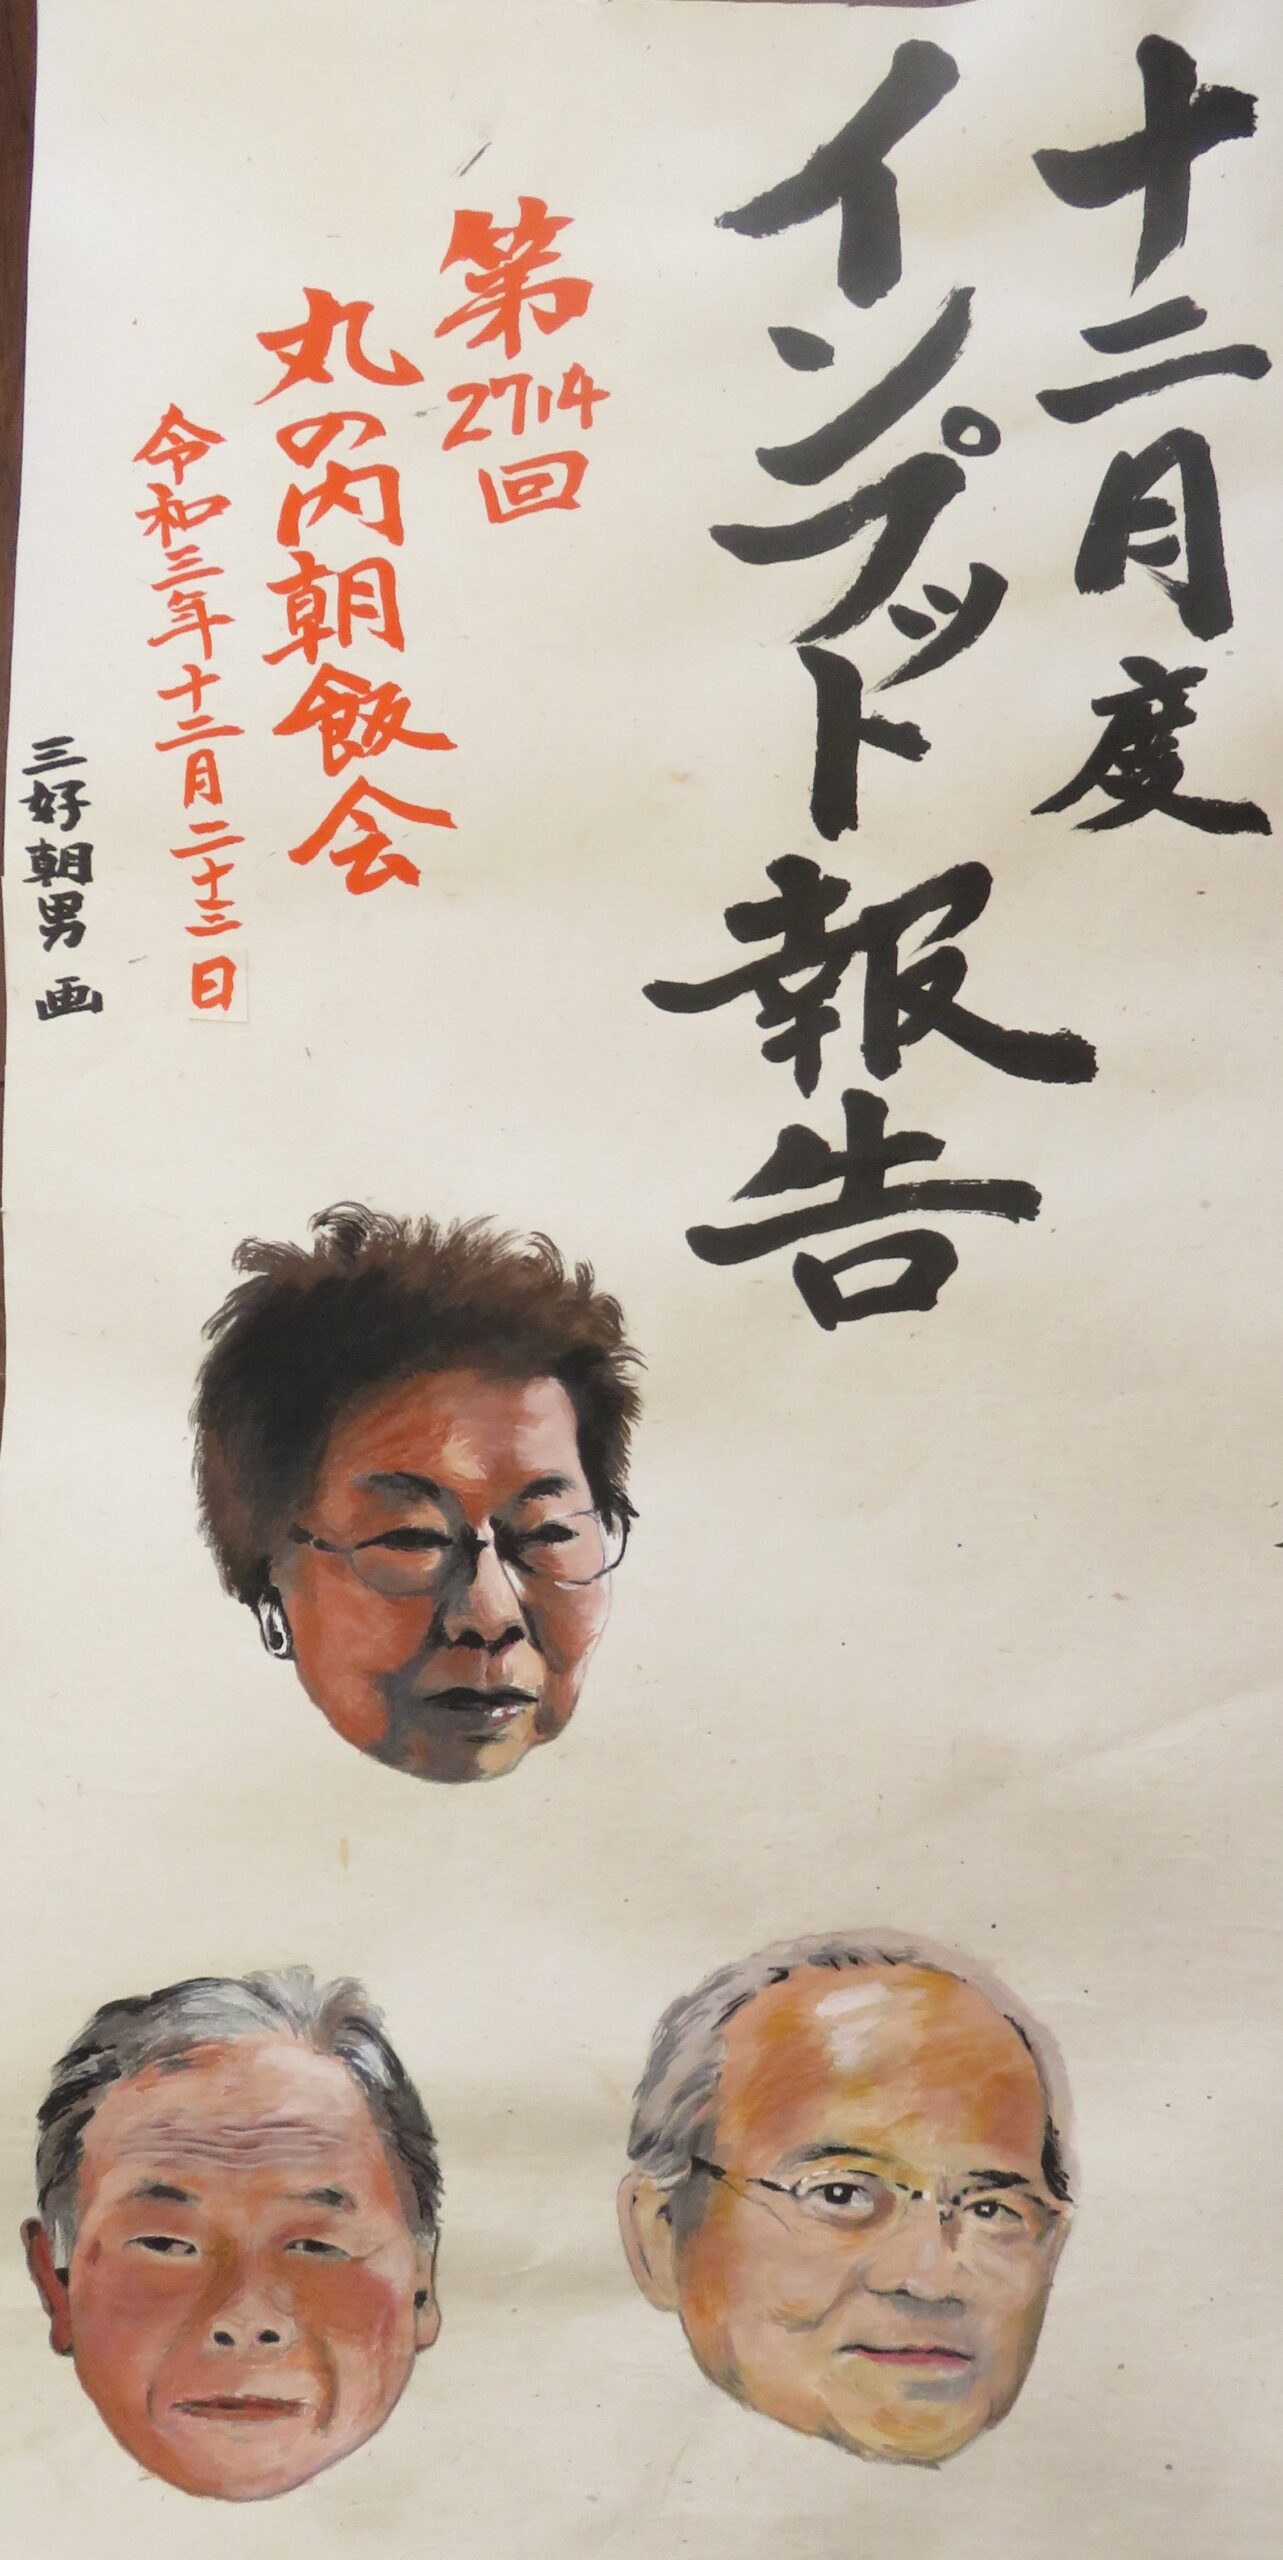 十二月度
インプット報告
第2714回
丸の内朝飯会
令和三年十二月二十三日
三好朝男 画